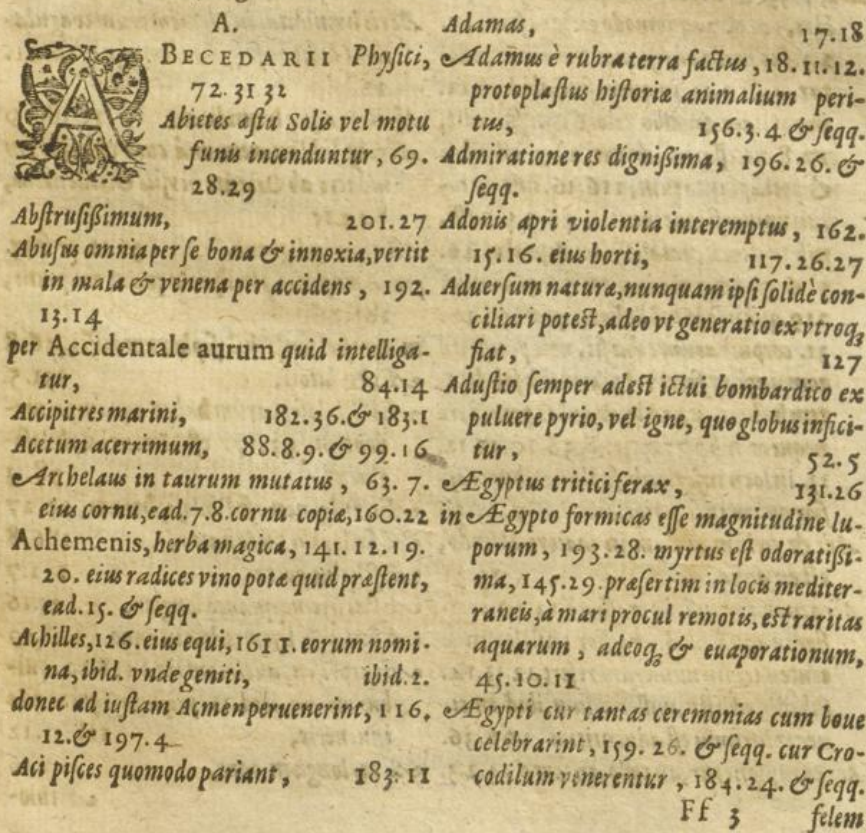 A.
ABECEDARII Phyſici,
72.31 32
Abietes æſtu Solis vel motu
funis incenduntur, 69.
28.29
Abſtruſißimum, 201.27
Abuſus omnia per ſe bona & innoxia, vertit
in mala & venena per accidens, 192.
13.14
per Accidentale aurum quid intelliga-
tur, 84.14
Accipitres marini, 182.36.& 183.1
Acetum acerrimum, 88.8.9.& 99.16
Archelaus in taurum mutatus, 63. 7.
eius cornu, ead.7.8. cornu copiæ, 160.22
Achemenis, herba magica, 141. 12.19.
20. eius radices vino potæ quid præſtent,
ead.15. & ſeqq.
Achilles, 126. eius equi, 161 1. eorum nomi-
na, ibid. vnde geniti, ibid.2.
donec ad iuſtam Acmen peruenerint, 116.
12.& 197.4
Aci piſces quomodo pariant, 183.11
Adamas, 17.18
Adamus è rubra terra factus, 18.11.12.
protoplaſtus hiſtoriæ animalium peri-
tus, 156.3.4 & ſeqq.
Admiratione res dignißima, 196.26. &
ſeqq.
Adonis apri violentia interemptus, 162.
15.16. eius horti, 117.26.27
Aduerſum naturæ, nunquam ipſi ſolidè con-
ciliari poteſt, adeo vt generatio ex vtroq;
fiat, 127
Aduſtio ſemper adeſt ictui bombardico ex
puluere pyrio, vel igne, quo globus infici-
tur, 52.5
Ægyptus tritici ferax, 131.26
in Ægypto formicas eſſe magnitudine lu-
porum, 193.28. myrtus eſt odoratißi-
ma, 145.29. præſertim in locis mediter-
raneis, à mari procul remotis, eſt raritas
aquarum, adeoq; & euaporationum,
45.10.11
Ægypti cur tantas ceremonias cum boue
celebrarint, 159. 26. & ſeqq. cur Cro-
codilum venerentur, 184.24. & ſeqq.
Ff 3 felem